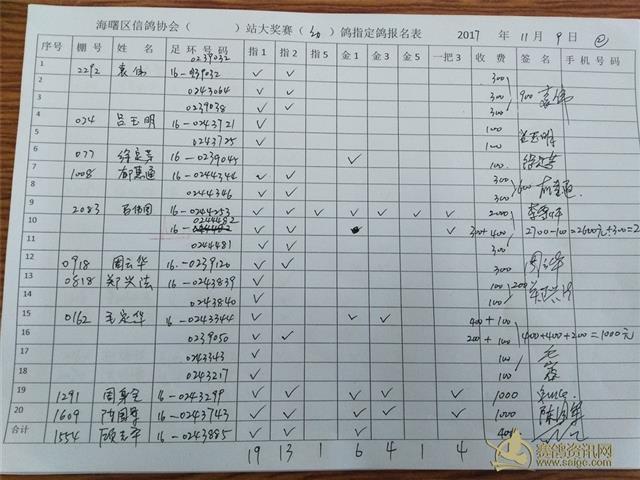 海曙区信鸽协会（ ）站大奖赛（幼）鸽指定鸽报名表 2017 年 11 月 9 日 ②
序号 棚号 姓名 足环号码 指1 指2 指5 金1 金3 金5 一把3 收费 签名 手机号码
0239032
1 2292 袁伟 16-039032 ✓ ✓ 300
2 0243064 ✓ ✓ 300 900
3 0239038 ✓ ✓ 300
4 024 吕玉明 16-0243721 ✓ 100
5 0243725 ✓ 100
6 077 16-0239045 ✓ 100
7 1008 16-0244344 ✓ ✓ 300
8 0244346 ✓ ✓ 300 600
9 2083 16-0244253 ✓ ✓ ✓ ✓ ✓ ✓ ✓ 2000
0244482
10 16- ✓ ✓ ✓ 300+400 2700-100=2600元+300=2
11 0244481 ✓ ✓ 300
12 0918 周云华 16-0239120 ✓ ✓ 300 周云华
13 0818 郑兴法 16-0243839 ✓ 100
14 0243840 ✓ 100 200
15 0162 毛定华 16-0243344 ✓ ✓ ✓ 400+100
16 0239050 ✓ ✓ 200+100 400+400+200=1000元
17 0243343 ✓ 100
18 0243217 ✓ 100
19 1291 16-0243299 ✓ ✓ ✓ ✓ ✓ 1000
20 1609 16-0243743 ✓ ✓ ✓ ✓ ✓ 1000
合计 1554 16-0243885 ✓ ✓ ✓ 400
19 13 1 6 4 1 4
赛鸽资讯网
www.saige.com